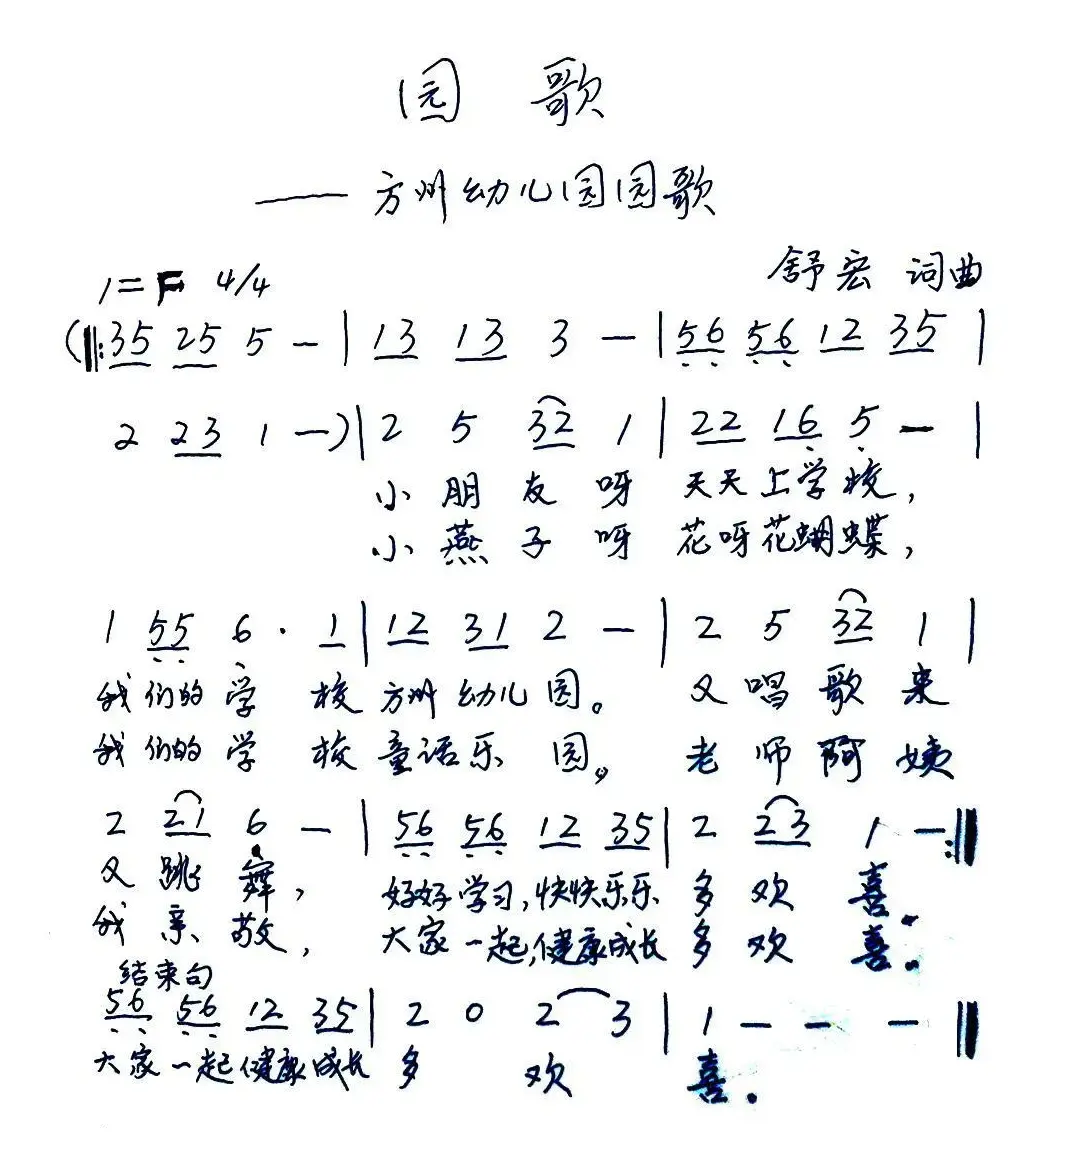 园 歌
—— 方州幼儿园园歌
1=F 4/4
舒宏 词曲
(‖:35 25 5 - | 13 13 3 - | 56 56 12 35 |
2 23 1 -) | 2 5 32 1 | 22 16 5 - |
小 朋 友 呀 天天上学校，
小 燕 子 呀 花呀花蝴蝶，
1 55 6 · 1 | 12 31 2 - | 2 5 32 1 |
我 们的 学 校 方州 幼儿 园。 又 唱 歌 来
我 们的 学 校 童话乐 园。 老 师 阿 姨
2 21 6 - | 56 56 12 35 | 2 23 1 - :‖
又 跳 舞， 好好学习，快快乐乐 多 欢 喜。
我 亲 敬， 大家一起，健康成长 多 欢 喜。
结束句
56 56 12 35 | 2 0 2 3 | 1 - - - ‖
大家一起健康成长 多 欢 喜。